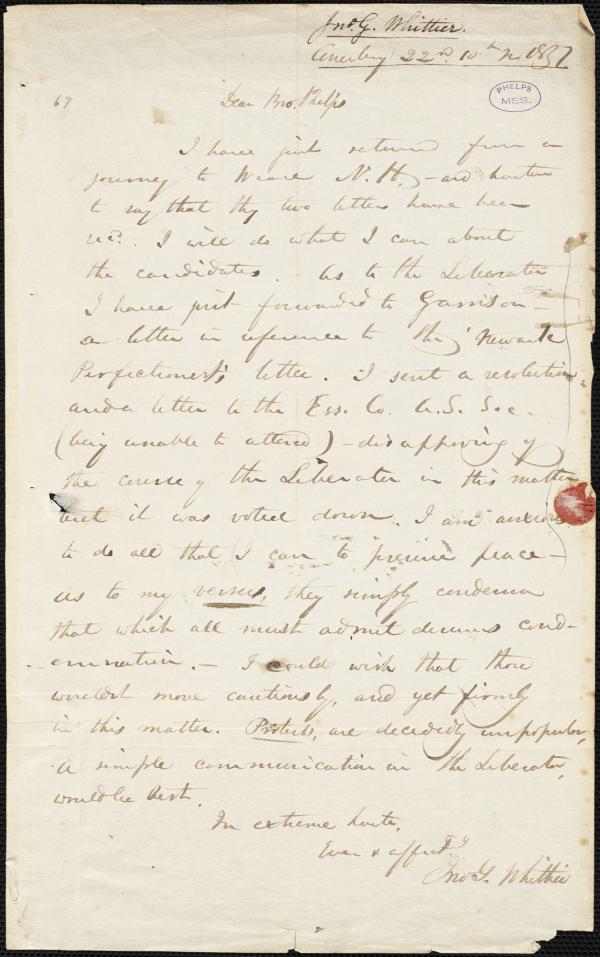 Jno. G. Whittier.
Amesbury 22nd. 10th Mo 1837
67
PHELPS
MSS.
Dear Bro. Phelps
I have just returned from a
journey to Weare N. H. - and hasten
to say that thy two letters have been
rec'd. I will do what I can about
the candidates. - As to the Liberator
I have just forwarded to Garrison -
a letter in reference to the 'Newark
Perfectionist's letter. I sent a resolution
and a letter to the Ess. Co. A. S. Soc.
(being unable to attend) - disapproving of
the course of the Liberator in this matter
but it was voted down. I am anxious
to do all that I can to preserve peace -
As to my verses, they simply condemn
that which all must admit deserves cond-
emnation. - I could wish that thou
wouldst move cautiously, and yet firmly
in this matter. Protests, are decidedly unpopular,
A simple communication in the Liberator,
would be best.
In extreme haste,
Ever & affectly
Jno. G. Whittier